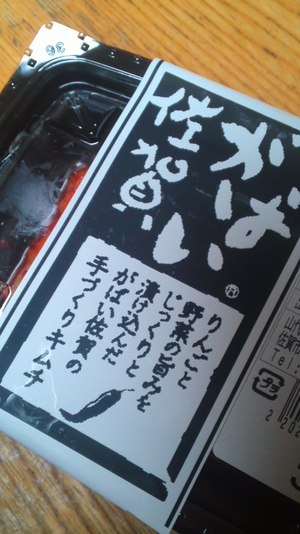 がばい
佐賀
®
りんごと
野菜の旨みを
じっくりと
漬け込んだ
がばい佐賀の
手づくりキムチ
山
佐賀市
Tel
プラ